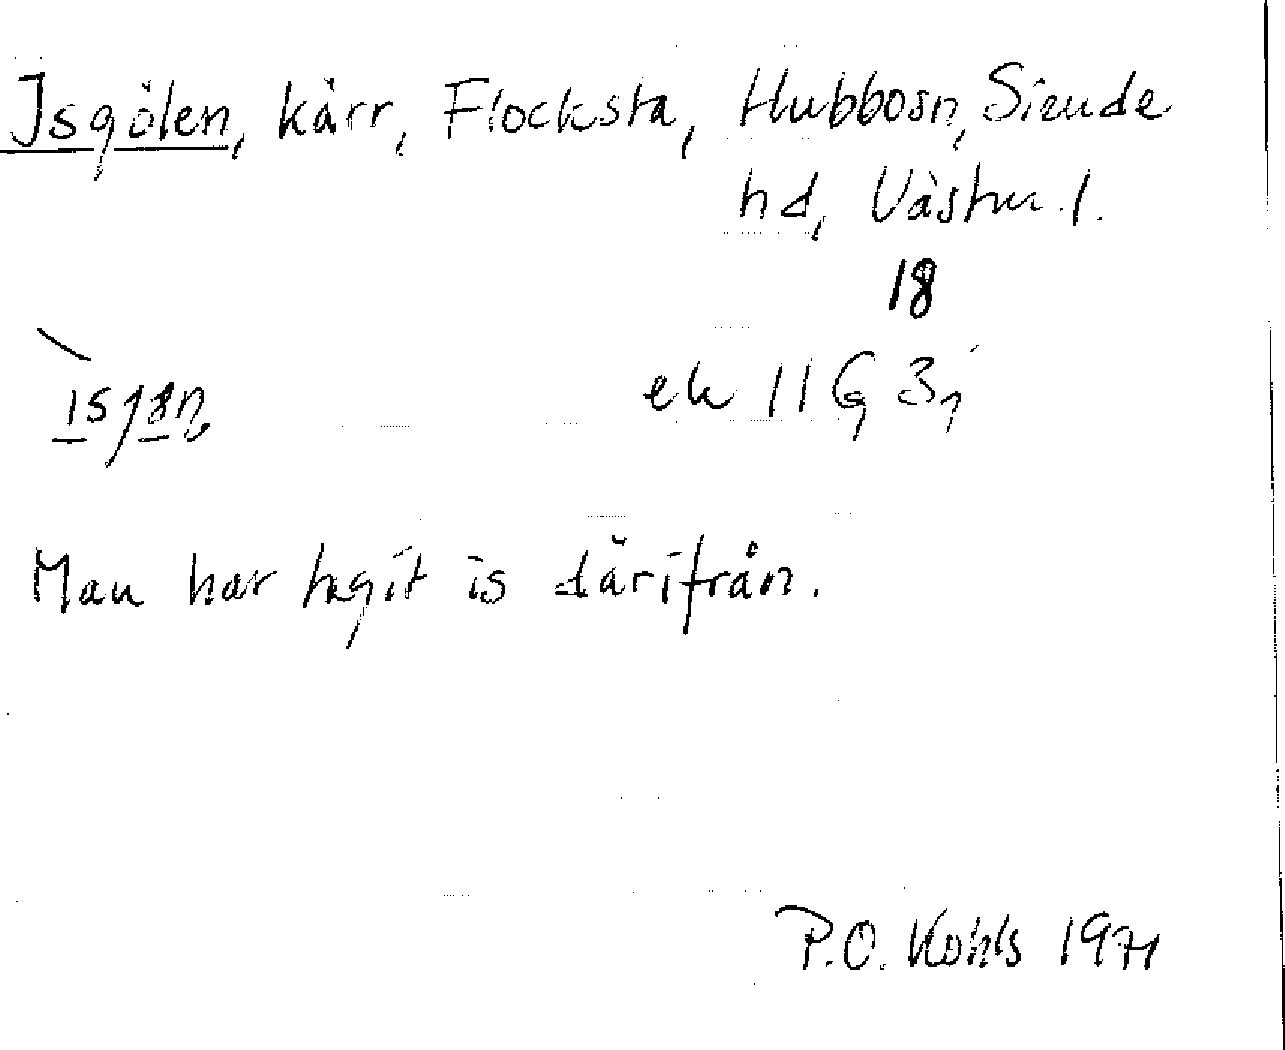 Isgölen, kärr, Flocksta, Hubbosn, Siende
hd, Västm. l.
18
ek 11 G 3j
Man har tagit is därifrån.
P.O. Kohls 1971